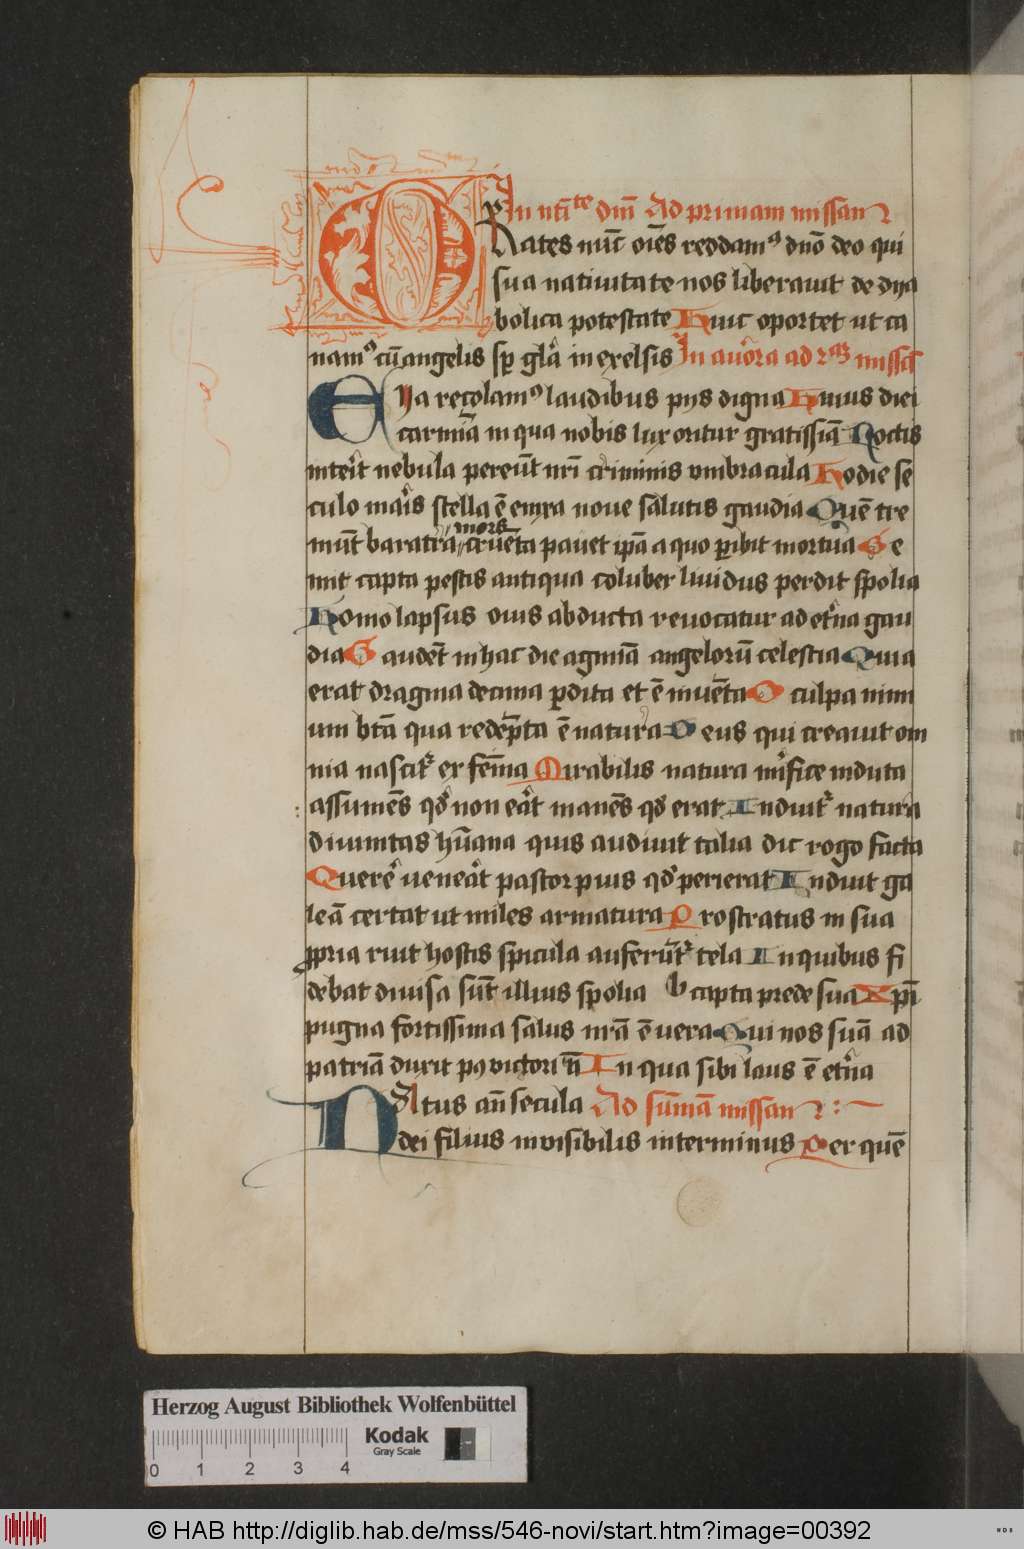 In nti̅te dn̅i Ad primam missam
Rates nu̅c oi̅es reddamꝰ dn̅o deo qui
sua natiuitate nos liberauit de dya
bolica potestate Huic oportet ut ca
namꝰ cu̅ angelis sp̅ gl̅a in exelsis In aurora ad 2am missa̅
Eya recolamꝰ laudibus pijs digna Huius diei
carmi̅a in qua nobis lux oritur gratissi̅a Noctis
interit nebula pereu̅t nr̅i criminis vmbracula Hodie se
culo maris stella e̅ enixa noue salutis gaudia Que̅ tre
mu̅t baratra mors crue̅ta pauet ip̅a a quo ꝑibit mortua Ge
mit capta pestis antiqua coluber liuidus perdit spolia
Homo lapsus ouis abducta reuocatur ad et̅na gau
dia Gaude̅t in hac die agmi̅a angeloru̅ celestia Quia
erat dragma decima ꝑdita et e̅ inue̅ta O culpa nimi
um bt̅a qua rede̅pta e̅ natura Deus qui creauit om
nia nascit᷑ ex fe̅i̅a Mirabilis natura mi̅fice induta
assume̅s qd̅ non erat mane̅s qd̅ erat Induit᷑ natura
diuinitas hu̅ana quis audiuit talia dic rogo facta
Quere̅ venerat pastor pius qd̅ perierat Induit ga
lea̅ certat ut miles armatura Prostratus in sua
ꝓpria ruit hostis spicula auferu̅t᷑ tela In quibus fi
debat diuisa su̅t illius spolia capta prede sua Xp̅i
pugna fortissima salus nr̅a e̅ vera Qui nos sua̅ ad
patria̅ duxit pꝰ victori a̅ In qua sibi laus e̅ et̅na
Natus an̅ secula Ad su̅ma̅ missam
dei filius invisibilis interminus Per que̅
Herzog August Bibliothek Wolfenbüttel
Kodak
Gray Scale
0 1 2 3 4
© HAB http://diglib.hab.de/mss/546-novi/start.htm?image=00392